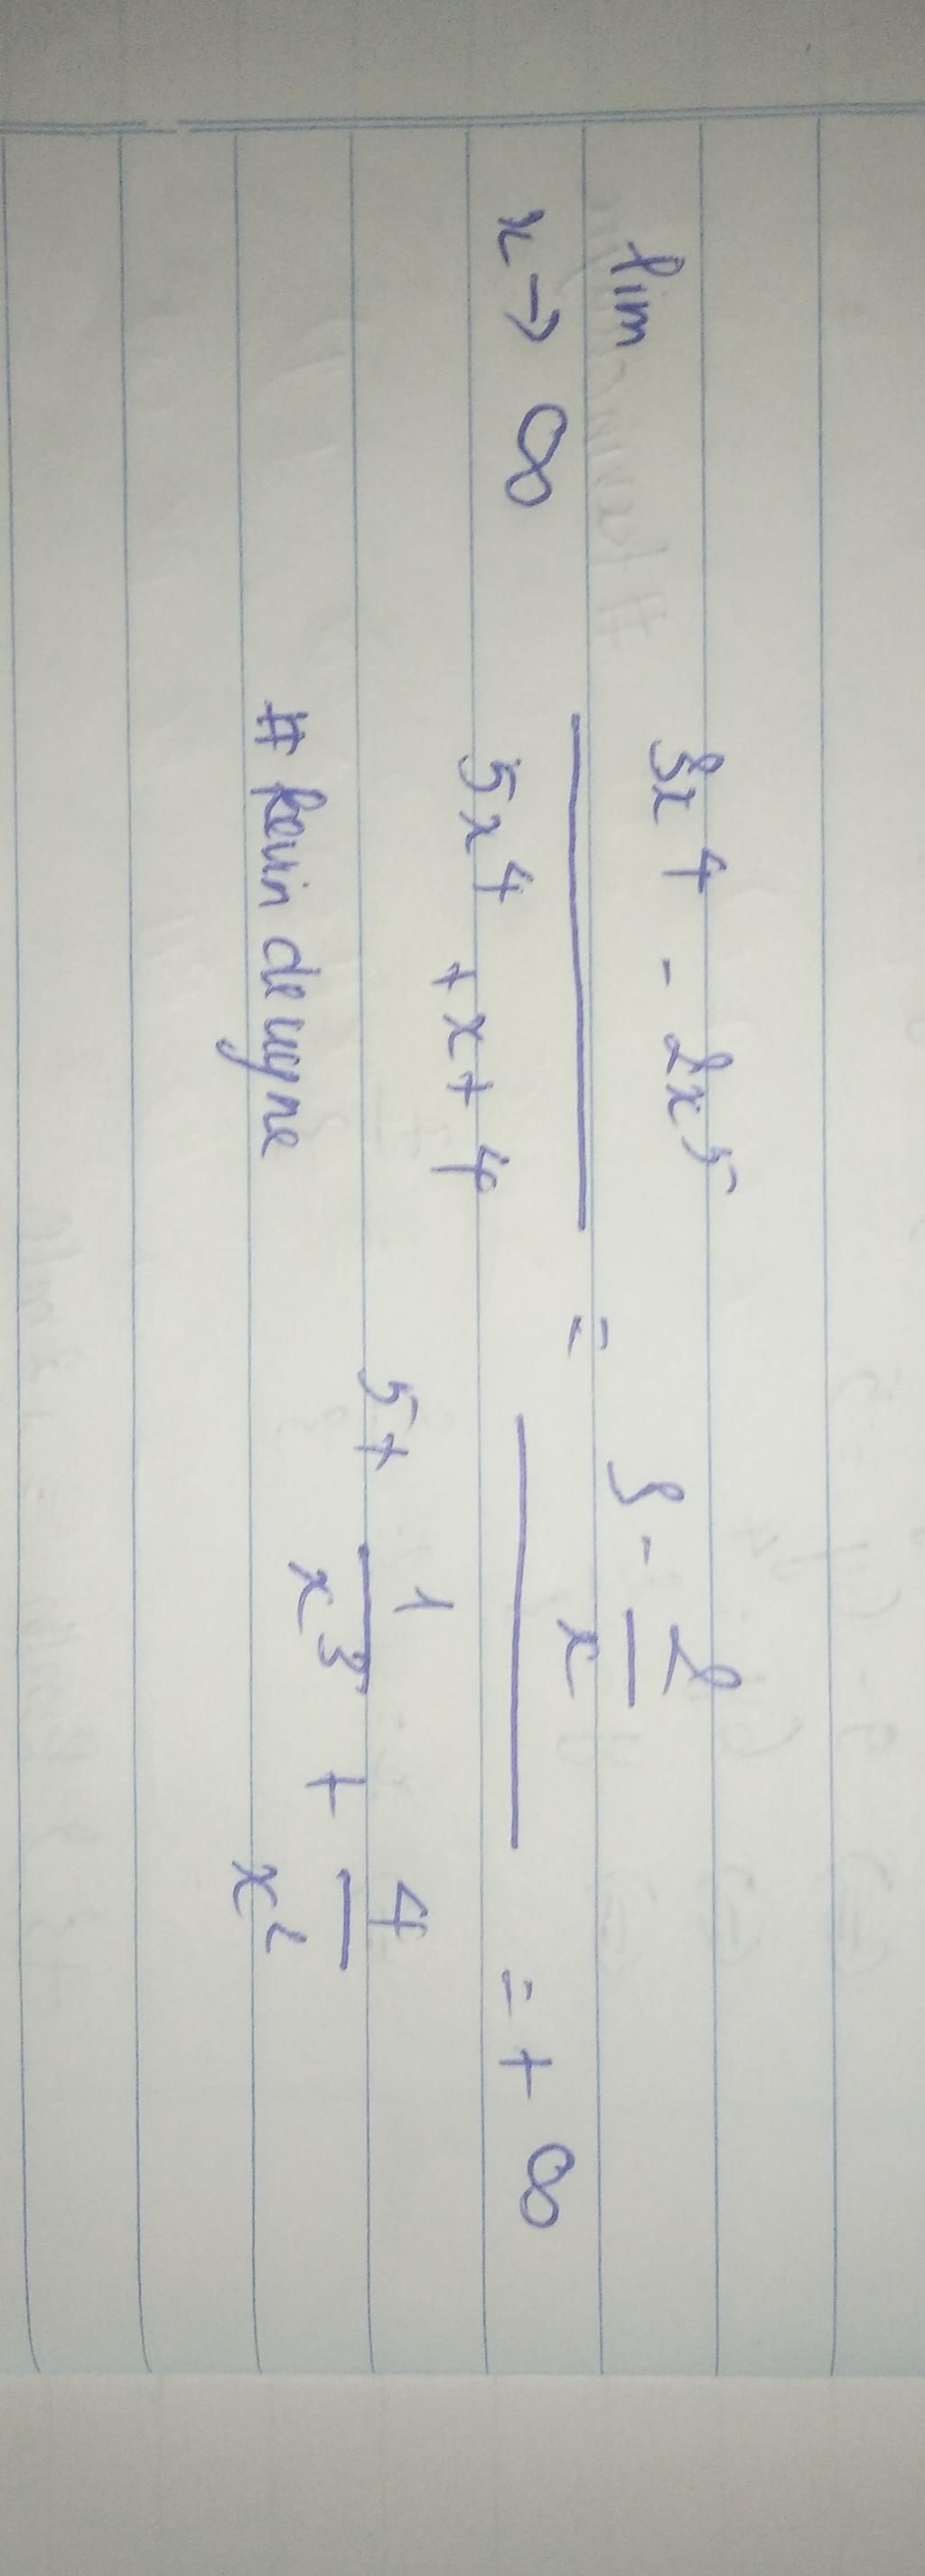 lim x → ∞ 3x⁴ - 2x⁵ / 5x⁴ + x + 4 = 3 - 2/x / 5 + 1/x³ + 4/x² = + ∞
# kevin de uyne